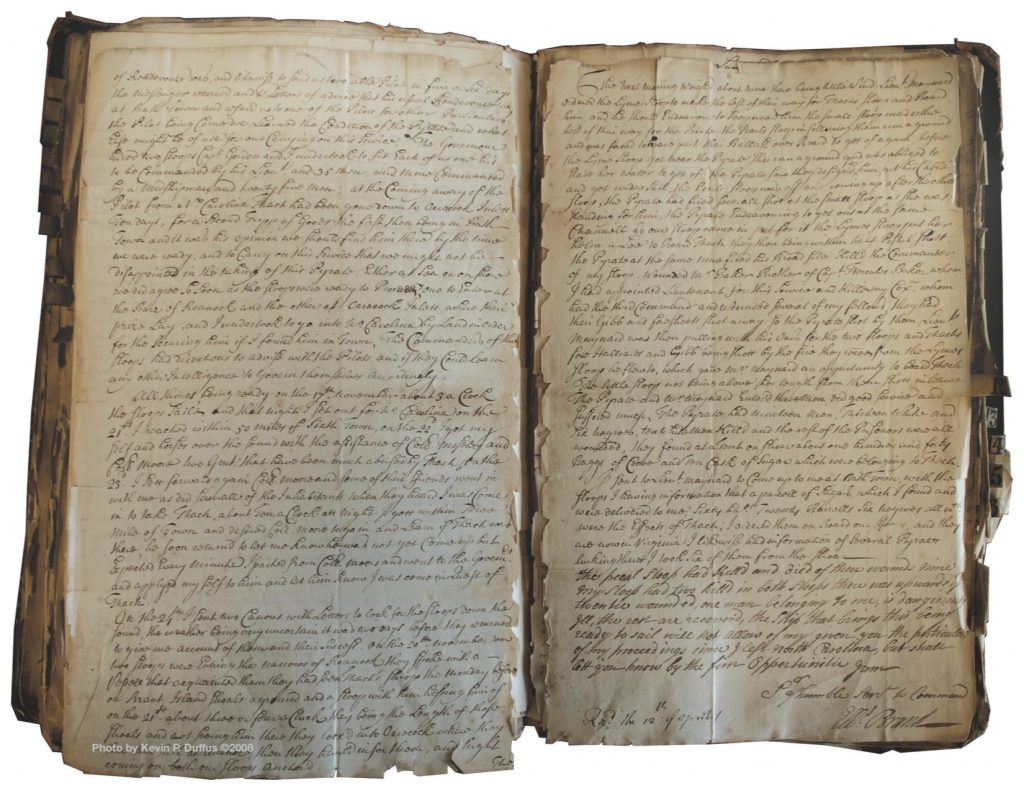 of Rendevouze and likewise to send us two able Pilots in five or six days
the Messenger returned and Letters of advice that his usual Rendevouze was
at Bath Town and
the Pilot being Come we Learned the Condition of the Pyrate and what
might be of use for our Carrying on this Service The Governour
hired two sloops Capt Gordon and I undertook to fit Each of us one his
to be Commanded by his Lieut and 35 men, and mine Commanded
by a Midshipman and twenty five men at the Coming away of the
Pilot from No Caroline Thach had been gone down to Ocacock Inlet
days, for a Second Tripp of Goods the first then being in Bath
Town and it was his opinion we should find him there by the time
we were ready, and to Carry on this Service that we might not be
disappointed in the taking of this Pyrate Either at Sea or on shore
we did agree as Soon as the Sloops were ready to Proceed one to Enter at
the Barr of Roanock and the other at Ocacock Inlett where their
prize Lay, and I undertook to go into No Carolina by Land in order
for the Securing him if I found him in Town, The Commanders of the
sloops had directions to advise with the Pilots and if they Could Learn
any other Intelligence to Govern themselves accordingly.
All things being ready on the 17th November about 3 a Clock
the sloops Saild and that night I Set out for No Carolina, on the
21st I reached within 50 miles of Bath Town, on the 22 I got my
self and horses over the Sound with the assistance of Collo Moseley and
Collo Moore two Gent that have been much abused by Thach, on the
23 I Sett forward again Collo Moore and some of their friends went in
with me as did severall of the Inhabitants when they heard I was Come
in to take Thach, about ten a Clock att Night I gott within three
mile of Town and desired Collo Moore to goe in and Learn if Thach was
there he Soon returnd to let me know he was not yet Come up but
Expected Every minute I parted from Collo Moore and went to the Governr
and applyed my Self to him and let him know I was come in quest of
Thach.
On the 24th I sent two Canous with Letters to look for the sloops Down the
Sound the weather being very uncertain it was two days before they returned
to give me account of them and their Success On the 20th november our
two sloops were Entring the narrows of Roanock they spoke with a
Vessell that acquainted them they had Seen Thachs sloop the Monday before
on Brant Island shoals a ground and a sloop with him helping him of
on the 21st about three or four a Clock they being the Length of those
shoals and not Seeing him there they stood into Ocacock where they
then they hauld in for them, and night
coming on both our sloops anchord.
The
Sir
The next morning weighd about nine there being little Wind Lieut Maynard
orderd the Lymes sloop to make the best of their way for Thachs sloop and Board
him and he should Endeavour to Second him the small sloop made the
best of their way for the Pirate the Pearls sloop in following them run a ground
and was forced to heave out their Ballast over Board to get of again before
the Lyme sloop got near the Pyrate She ran a ground and was obliged to
Stave her water to get of the Pyrate Saw they designed him cut his Cable
and got under Sail the Pearls sloop was off and coming up after the other
sloop, the Pyrate had fired severall shot at the small sloop as she was
standing for him, the Pyrate Endeavouring to get out at the same
Channell as our sloops came in put for it the Lymes sloop put her
helm a Lee to Board Thach they then being within half Pistol shott
the Pyrate at the same time fired his Broad Side Killd the Commander
of my sloop wounded Mr Baker Brother of Capt Hercules Baker, whom
I had appointed Lieutenant for this Service and Killd my Coxn whom
had the third Command and wounded several of my fellows they had
their Gibb and foresheets Shot away So the Pyrate Shot by them Lieut
Maynard was then pulling with his Oars for the two sloops and Thachs
fore Halliards and Gibb being Shott by the fire they receivd from the Lymes
sloop he flew to, which gave Mr Maynard an opportunity to board Thach
The little sloop not being above her length from them Shott in between
The Pyrate and Mr Maynard Enterd three Men did good Service and
suffered much. The Pyrate had nineteen men, Thirteen White and
Six negroes, ten White Men Killd and the rest of the Prisoners were all
wounded, they found at a Tent on Shore about one hundred and forty
Baggs of Cocoe and ten Cask of Sugar which were belonging to Thach.
I sent to Lieut Maynard to Come up to me at Bath Town, with the
sloops I having information that a parcell of Sugars which I found and
were delivered to me Sixty hhds Twenty Barrells Six negroes all wch
were the Effects of Thach; I orderd them on Board our sloops, and they
are now in Virginia I likewise had information of Several Pyrates
lurking there I took six of them from the shoar
the pearl Sloop had Killd and died of there wounds nine
my Sloop had two Killd in both Sloops there was upwards of
twentie wounded, one man belonging to me, is dangerously
Ill, the rest are recoverd, the Ship that brings this being
ready to sail will not allow of my given you the particulers
of my proceedings since I left North Carolina, but shall
lett you know by the first Opportunitie I am
Sr Yr Humble Servt to Command
Recd the 12th of April
Ellis Brand
Photo by Kevin P. Duffus ©2008